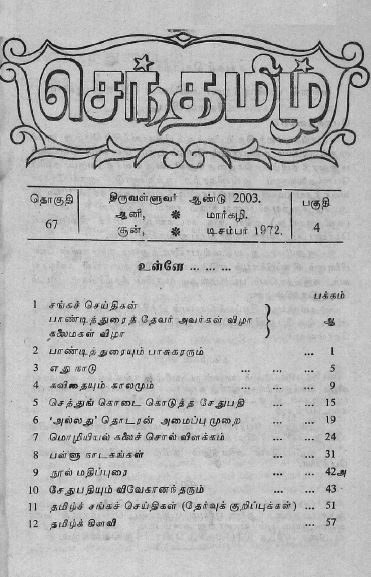 செந்தமிழ்
தொகுதி திருவள்ளுவர் ஆண்டு 2003. பகுதி
67 ஆனி, ✽ மார்கழி. 4
சூன், ✽ டிசம்பர் 1972.
உள்ளே ... ... ...
பக்கம்
1 சங்கச் செய்திகள்
பாண்டித்துரைத் தேவர் அவர்கள் விழா } ஆ
கலைமகள் விழா
2 பாண்டித்துரையும் பாசுகரரும் ... 1
3 எது நாடு ... ... ... 5
4 கவிதையும் காலமும் ... ... 9
5 செத்துங் கொடை கொடுத்த சேதுபதி ... 15
6 'அல்லது' தொடரன் அமைப்பு முறை ... 19
7 மொழியியல் கலைச் சொல் விளக்கம் ... 24
8 பள்ளு நாடகங்கள் ... ... 31
9 நூல் மதிப்புரை ... ... 42அ
10 சேதுபதியும் விவேகானந்தரும் ... ... 43
11 தமிழ்ச் சங்கச் செய்திகள் (தேர்வுக் குறிப்புக்கள்) ... 51
12 தமிழ்க் கிளவி ... ... 57